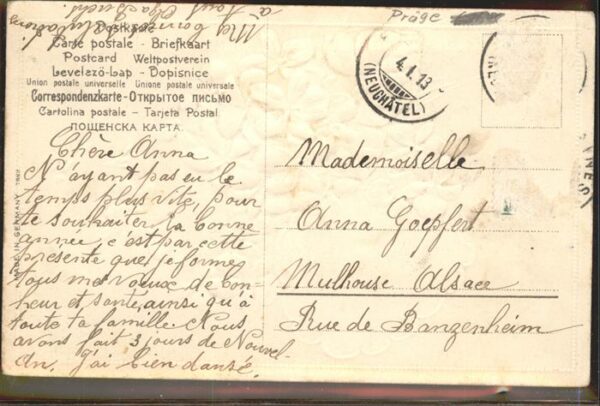 Präge
Postkarte
Carte postale - Briefkaart
Postcard Weltpostverein
Levelező-Lap - Dopisnice
Union postale universelle Unione postale universale
Correspondenzkarte - ОТКРЫТОЕ ПИСЬМО
Cartolina postale - Tarjeta Postal
ПОЩЕНСКА КАРТА.
MADE IN GERMANY
4.I.13
(NEUCHÂTEL)
Chère Anna
N'ayant pas eu le
temps plus vite, pour
te souhaiter la bonne
année, c'est par cette
présente que je formes
tous mes voeux de bon-
heur et santé, ainsi qu'à
toute ta famille. Nous
avons fait 3 jours de Nouvel-
An. j'ai bien dansée.
Mademoiselle
Anna Goepfert
Mulhouse Alsace
Rue de Banzenheim